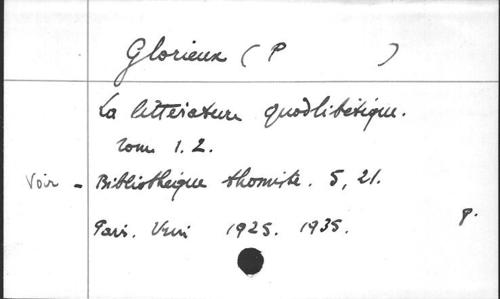 Glorieux (P )
La littérature quodlibétique.
Tom 1. 2.
Voir - Bibliothèque thomiste. 5, 21.
Paris. Vrin 1925. 1935. P.